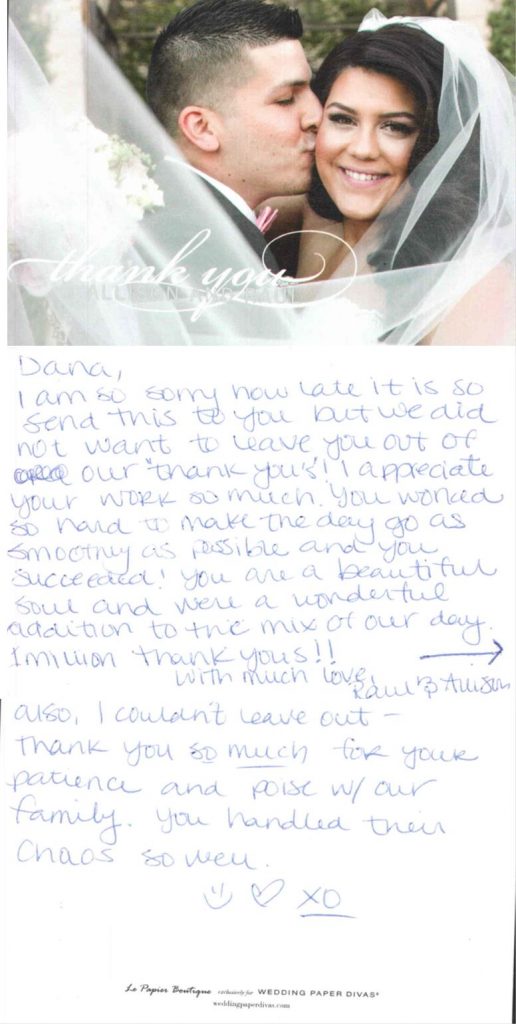 thank you
ALLISON AND PAUL
Dana,
I am so sorry how late it is so
send this to you but we did
not want to leave you out of
our "thank you's"! I appreciate
your work so much. You worked
so hard to make the day go as
smoothly as possible and you
succeeded! You are a beautiful
soul and were a wonderful
addition to the mix of our day.
1 million thank yous!!
with much love,
Paul & Allison
also, I couldn't leave out -
thank you so much for your
patience and poise w/ our
family. You handled their
chaos so well.
XO
Le Papier Boutique exclusively for WEDDING PAPER DIVAS®
weddingpaperdivas.com